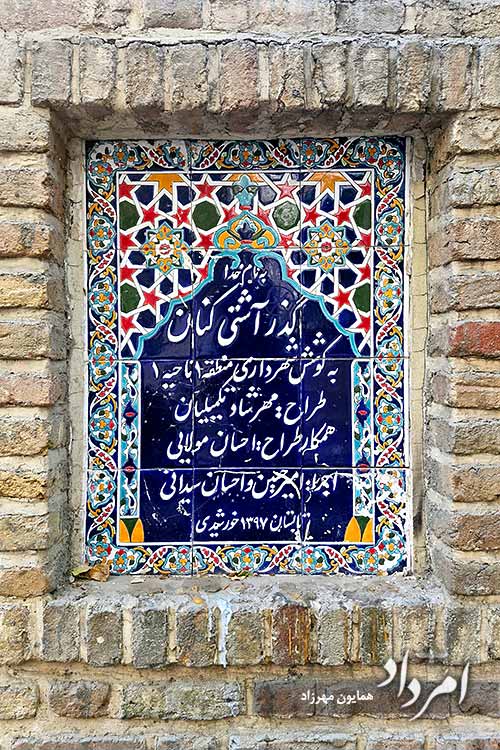 به نام خدا
گذر آشتی کنان
به کوشش شهرداری منطقه ۱ ناحیه ۱
طراح: مهرشاد تکمیلیان
همکار طراح: احسان مولایی
اجرا: امیرحسین و احسان سیدانی
تابستان ۱۳۹۷ خورشیدی
امرداد
همایون مهرزاد